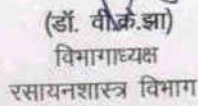 (डॉ. वी.के.झा)
विभागाध्यक्ष
रसायनशास्त्र विभाग